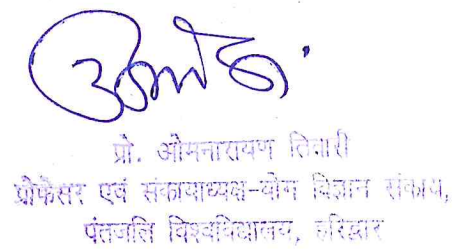 प्रो. ओमनारायण तिवारी
प्रोफेसर एवं संकायाध्यक्ष-योग विज्ञान संकाय,
पतंजलि विश्वविद्यालय, हरिद्वार